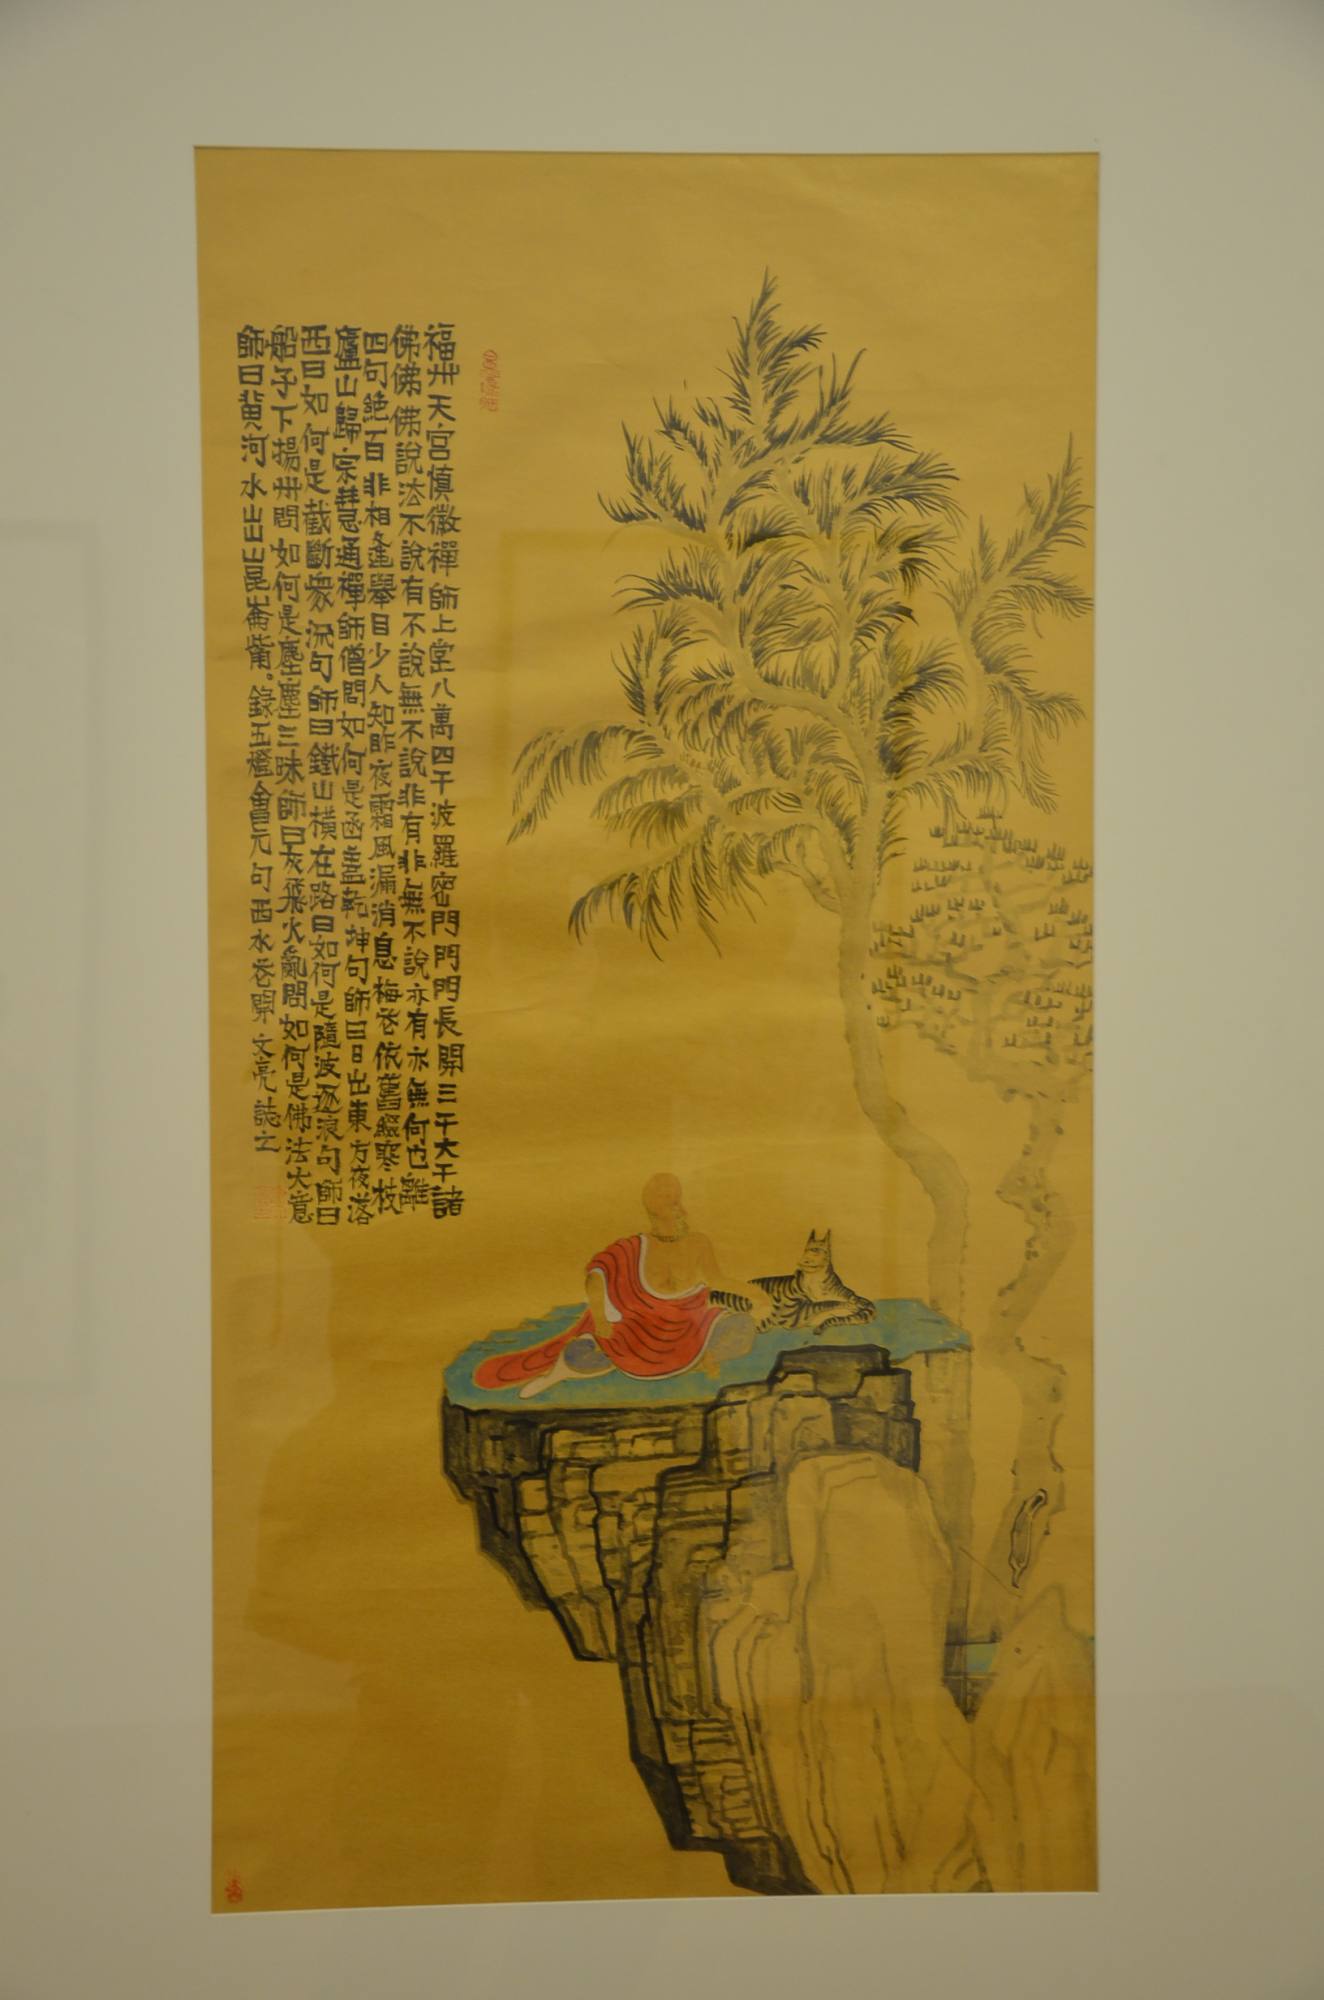 福州天宮慎徽禪師上堂八萬四千波羅密門門門長開三千大千諸
佛佛佛說法不說有不說無不說非有非無不說亦有亦無何也離
四句絶百非相逢舉目少人知昨夜霜風漏消息梅花依舊綴寒枝
廬山歸宗慧通禪師僧問如何是函蓋乾坤句師曰日出東方夜落
西曰如何是截斷衆流句師曰鐵山橫在路曰如何是隨波逐浪句師曰
船子下揚州問如何是塵塵三昧師曰灰飛火亂問如何是佛法大意
師曰黃河水出崑崙觜。錄五燈會元句西水花開文亮誌之